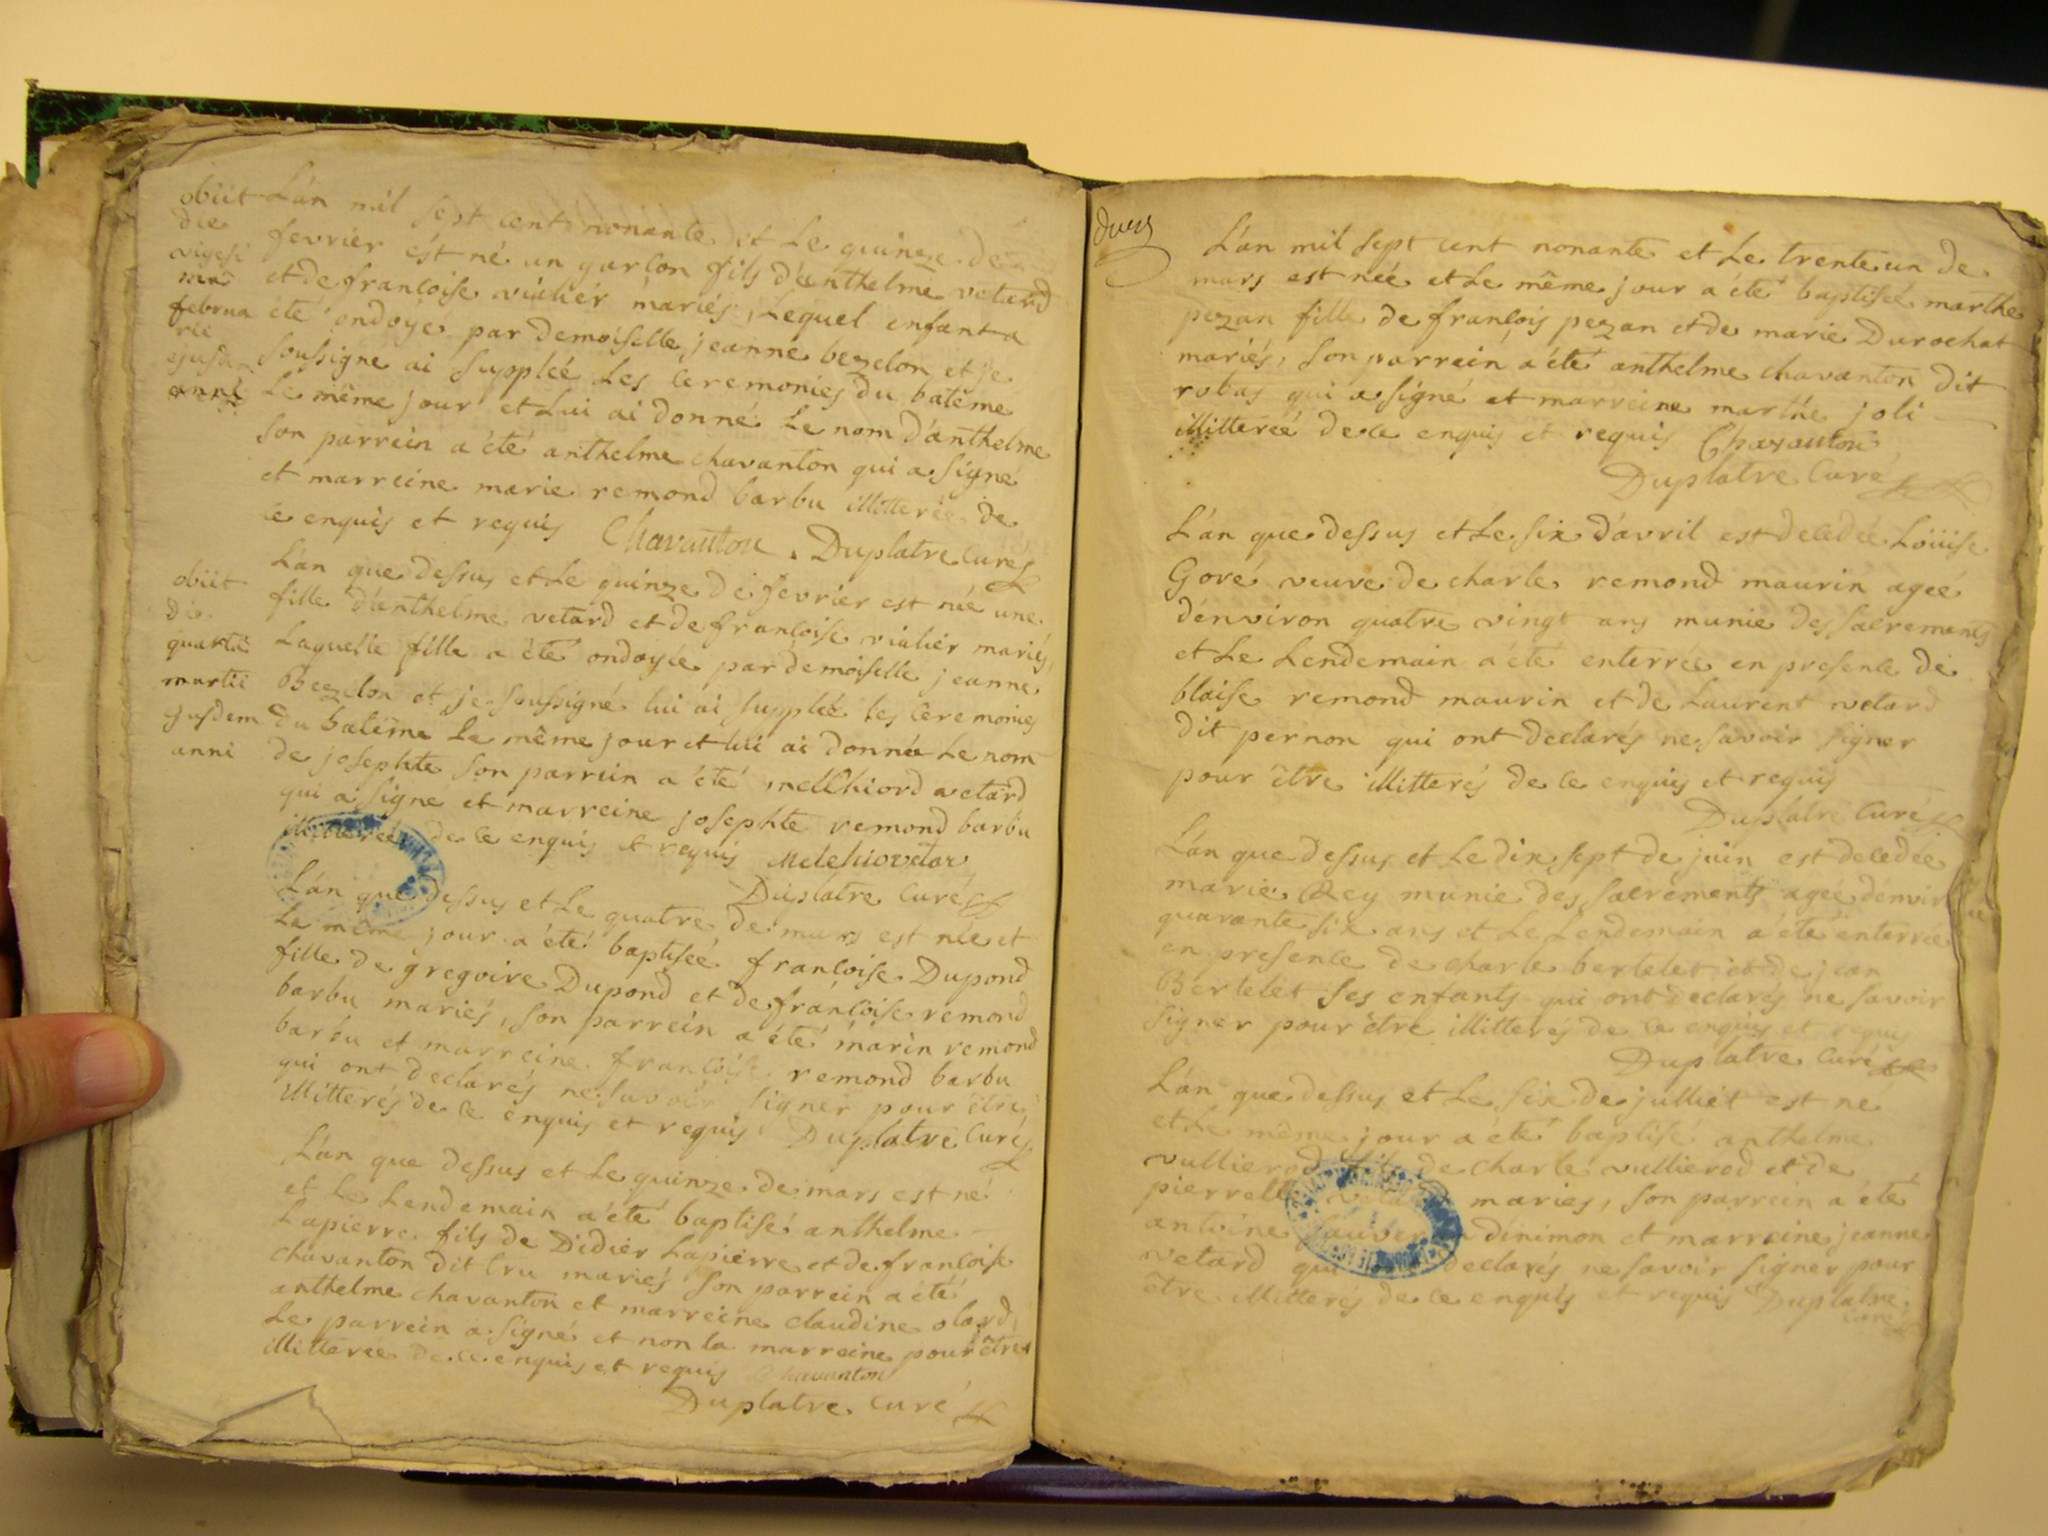 obiit
die
vigesi
ma
februa
rie
ejusde
anni
L'an mil sept cent nonante et Le quinze de
fevrier est né un garçon fils d'anthelme vetard
et de françoise viuliér mariés, Lequel enfant a
été ondoye par demoiselle jeanne bezelon et je
soussigne ai suppleé Les Ceremonies du batême
Le même jour et Lui ai donné Le nom d'anthelme
son parrein a été anthelme chavanton qui a signé
et marreine marie remond barbu illitterée de
ce enquis et requis Chavanton . Duplatre Curé
obiit
die
quarta
martii
ejusdem
anni
L'an que dessus et Le quinze de fevrier est née une
fille d'anthelme vetard et de françoise viuliér mariés,
Laquelle fille a été ondoyée par demoiselle jeanne
Bezelon et je soussigné lui ai suppleé les Ceremonies
du batême Le même jour et lui ai donnée Le nom
de josephte son parrein a été melChiord vetard
qui a signé et marreine josephte remond barbu
illitterée de ce enquis et requis Melchior vetar
Duplatre Curé
L'an que dessus et Le quatre de mars est née et
Le même jour a été baptiseé françoise Dupond
fille de gregoire Dupond et de françoise remond
barbu mariés, son parrein a été marin remond
barbu et marreine françoise remond barbu
qui ont declarés ne savoir signer pour être
illitterés de ce enquis et requis Duplatre Curé
L'an que dessus et Le quinze de mars est né
et Le Lendemain a été baptisé anthelme
Lapierre fils de Didier Lapierre et de françoise
chavanton dit Cru mariés son parrein a été
anthelme chavanton et marreine claudine olard,
Le parrein a signé et non la marreine pour être
illitterée de ce enquis et requis Chavanton
Duplatre Curé
L'an mil sept cent nonante et Le trente un de
mars est née et Le même jour a été baptiseé marthe
pezan fille de françois pezan et de marie Durochat
mariés, son parrein a été anthelme chavanton dit
robas qui a signé et marreine marthe joli
illitterée de ce enquis et requis Chavanton
Duplatre Curé
L'an que dessus et Le six d'avril est decedée Loüise
Goré veuve de charle remond maurin ageé
d'environ quatre vingt ans munie des sacremants
et Le Lendemain a été enterrée en presence de
blaise remond maurin et de Laurent vetard
dit pernon qui ont declarés ne savoir signer
pour être illitterés de ce enquis et requis
Duplatre Curé
L'an que dessus et Le dix sept de juin est decedée
marie Rey munie des sacrements ageé d'environ
quarante six ans et Le Lendemain a été enterrée
en presence de charle bertelet et de jean
Bertelet ses enfants qui ont declarés ne savoir
signer pour être illitterés de ce enquis et requis
Duplatre Curé
L'an que dessus et Le six de julliet est ne
et Le même jour a été baptisé anthelme
vullierod fils de charle vullierod et de
pierrette mariés, son parrein a été
antoine dinimon et marreine jeanne
vetard qui declarés ne savoir signer pour
être illitterés de ce enquis et requis Duplatre
Curé